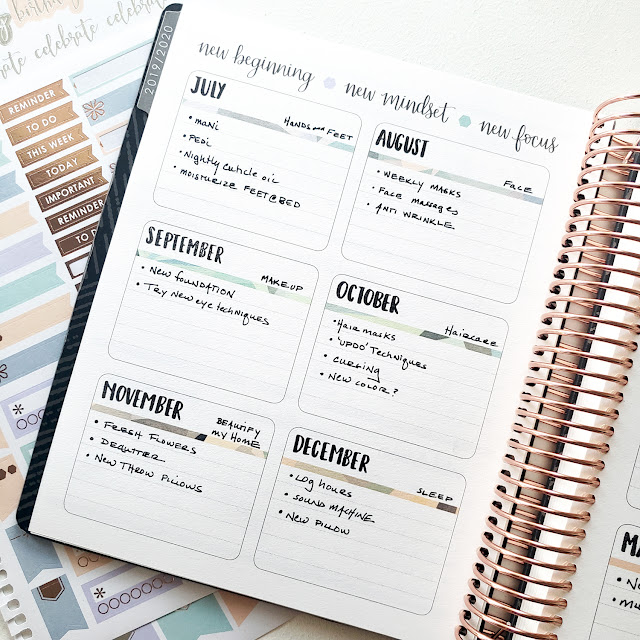 birthday
celebrate celebrate
REMINDER
TO DO
THIS WEEK
TODAY
IMPORTANT
REMINDER
TO D
2019/2020
new beginning new mindset new focus
JULY
HANDS AND FEET
• mani
• PEDI
• Nightly cuticle oil
• MOISTURIZE FEET@BED
AUGUST
FACE
• WEEKLY MASKS
• Face massages
• ANTI WRINKLE
SEPTEMBER
MAKEUP
• NEW FOUNDATION
• Try New eye techniques
OCTOBER
HAIRCARE
• Hair masks
• 'UPDO' Techniques
• CURLING
• NEW COLOR?
NOVEMBER
BEAUTIFY
MY HOME
• FRESH FLOWERS
• DECLUTTER
• NEW THROW PILLOWS
DECEMBER
SLEEP
• LOG HOURS
• SOUND MACHINE
• NEW PILLOW
MA
• No